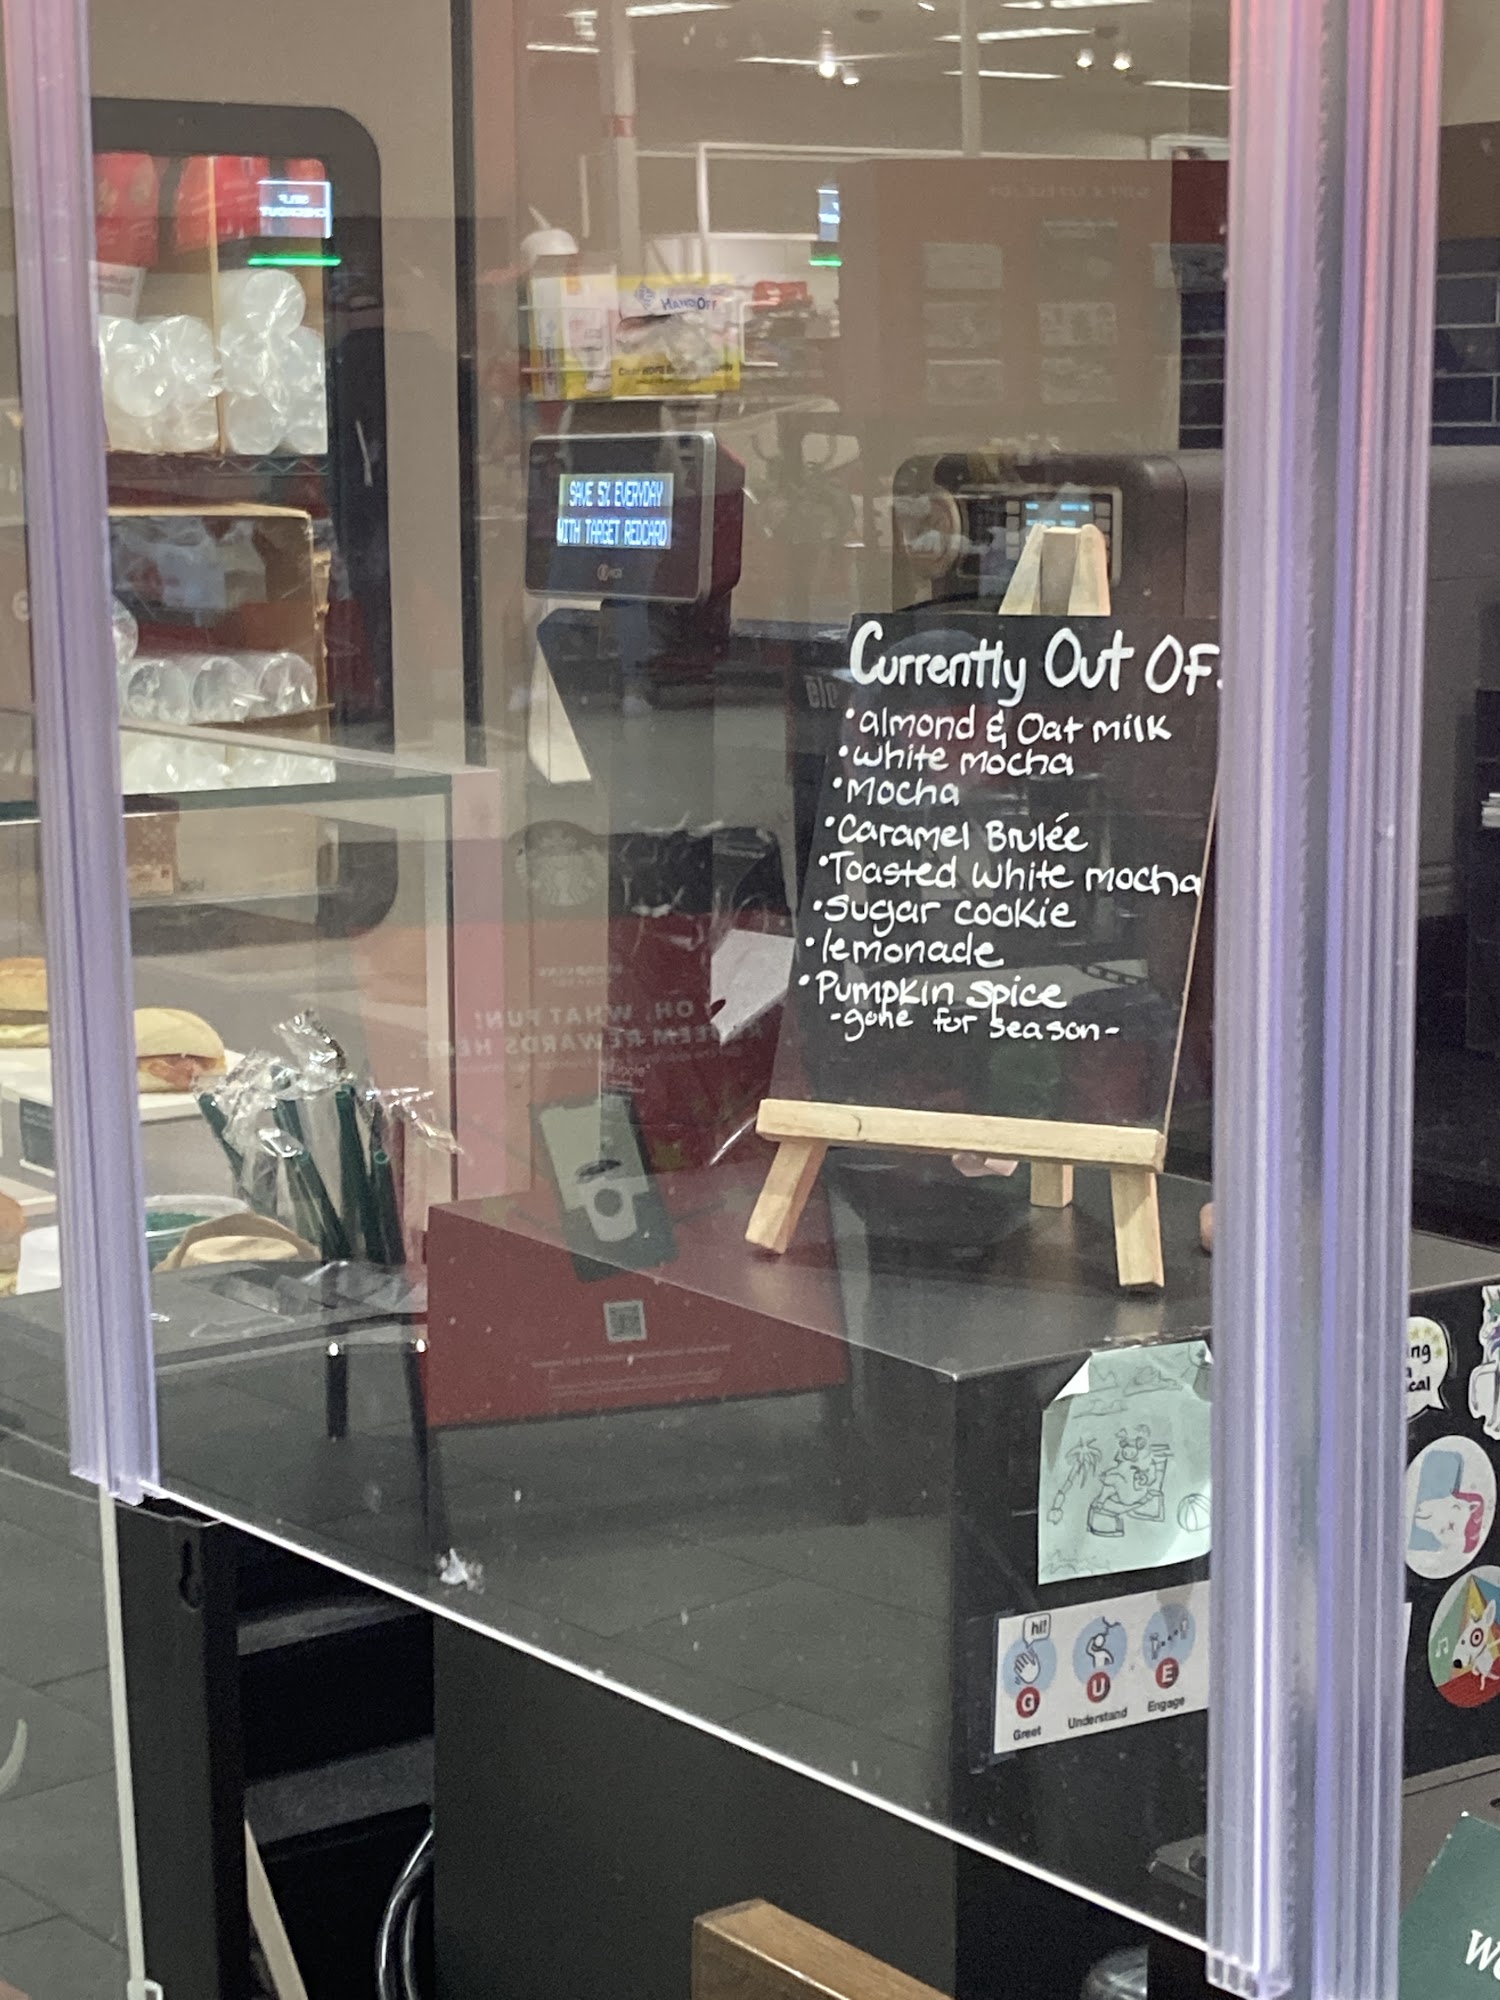 SAVE 5% EVERYDAY
WITH TARGET REDCARD
Currently Out OF
•almond & Oat milk
•white mocha
•Mocha
•Caramel Brulée
•Toasted white mocha
•Sugar cookie
•lemonade
•Pumpkin spice
-gone for season-
OH, WHAT FUN!
REDEEM REWARDS HERE.
hi!
G U E
Greet Understand Engage